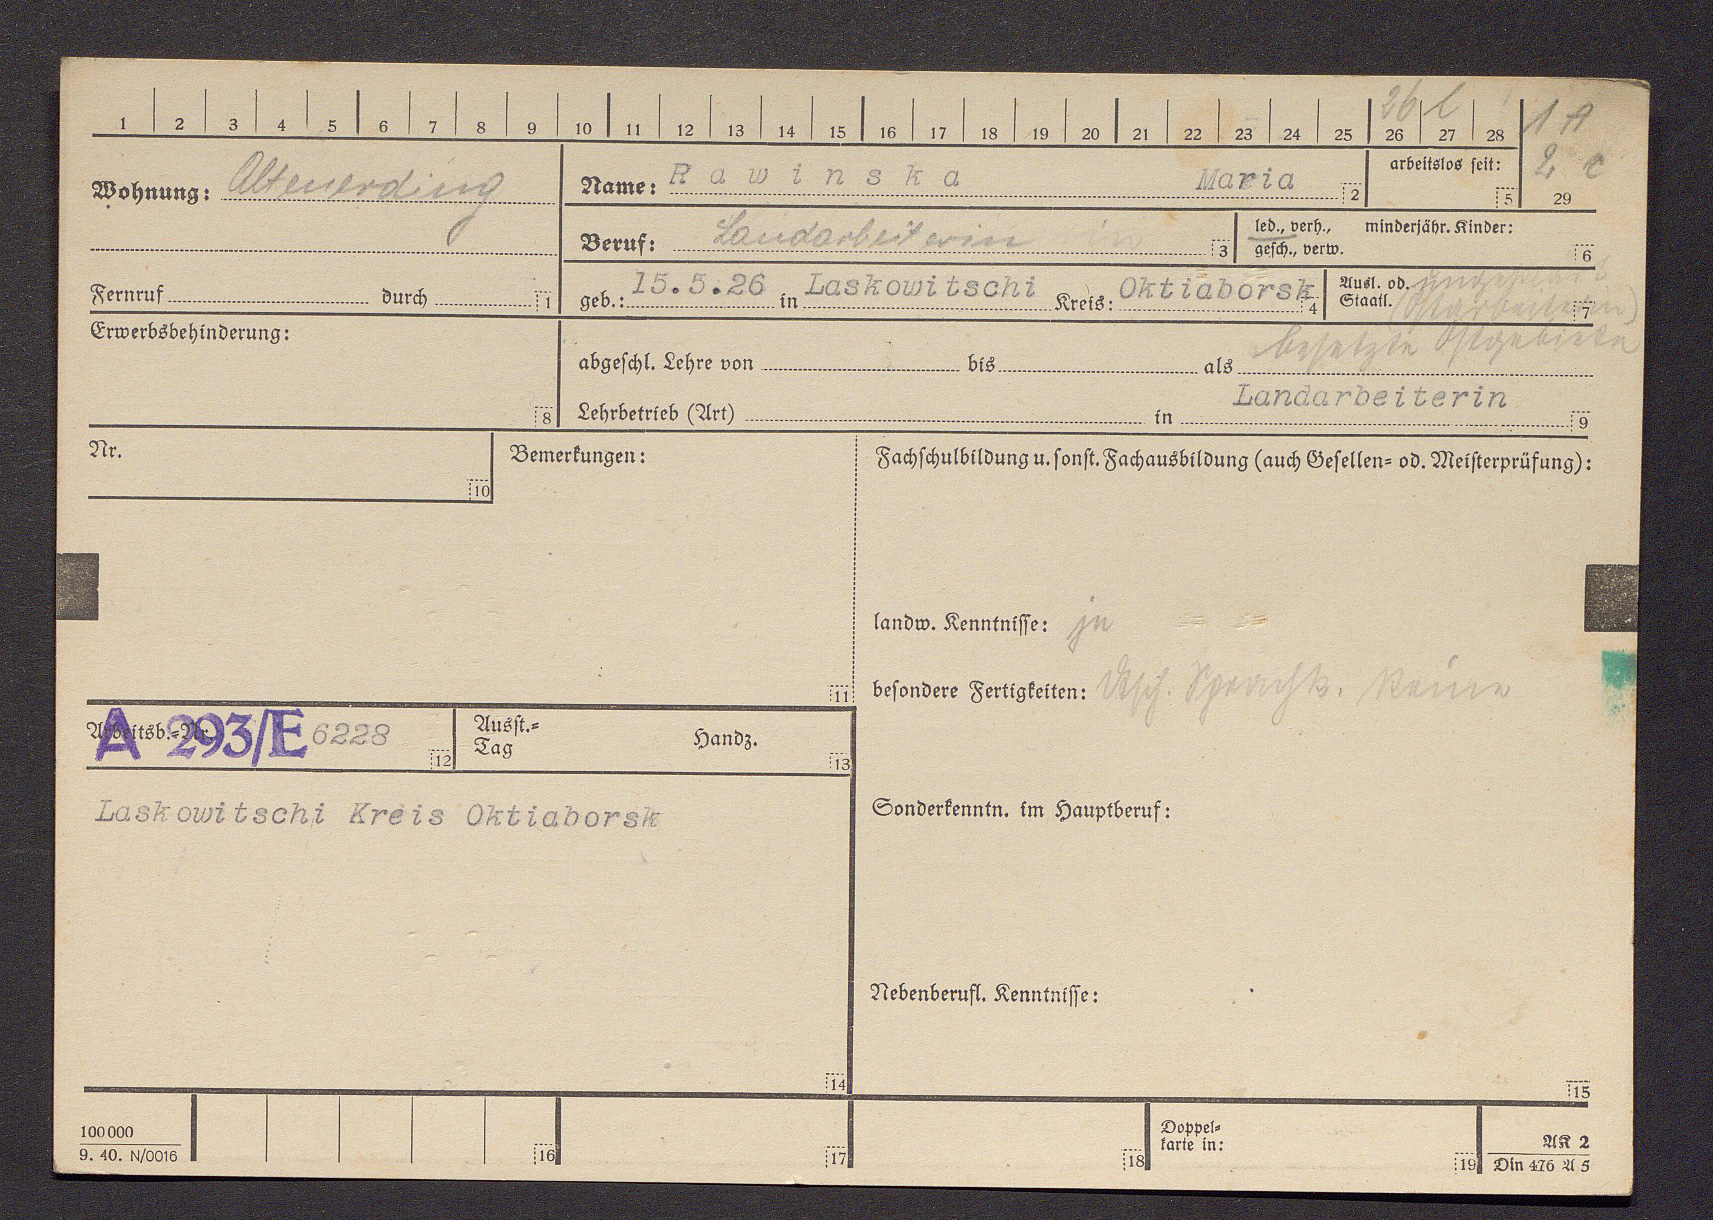 1 2 3 4 5 6 7 8 9 10 11 12 13 14 15 16 17 18 19 20 21 22 23 24 25 26 27 28 29
26 l
1 A
2 c
Wohnung: Altenerding
Name: Rawinska Maria 2
arbeitslos seit: 5
Beruf: Landarbeiterin 3
led., verh., gesch., verw.
minderjähr. Kinder: 6
Fernruf durch 1
geb.: 15.5.26 in Laskowitschi Kreis: Oktiaborsk 4
Ausl. od. Staatl. 7
(Ostarbeiterin)
besetzte Ostgebiete
Erwerbsbehinderung: 8
abgeschl. Lehre von bis als
Landarbeiterin
Lehrbetrieb (Art) in 9
Nr. 10
Bemerkungen: 11
Fachschulbildung u. sonst. Fachausbildung (auch Gesellen- od. Meisterprüfung):
landw. Kenntnisse: ja
besondere Fertigkeiten: Dtsch. Sprachk. keine
Arbeitsb.-Nr. A 293/E 6228 12
Ausst.-Tag Handz. 13
Laskowitschi Kreis Oktiaborsk
14
Sonderkenntn. im Hauptberuf:
Nebenberufl. Kenntnisse:
15
100000
9. 40. N/0016
16 17 18
Doppel-
karte in: 19
AK 2
Din 476 A 5